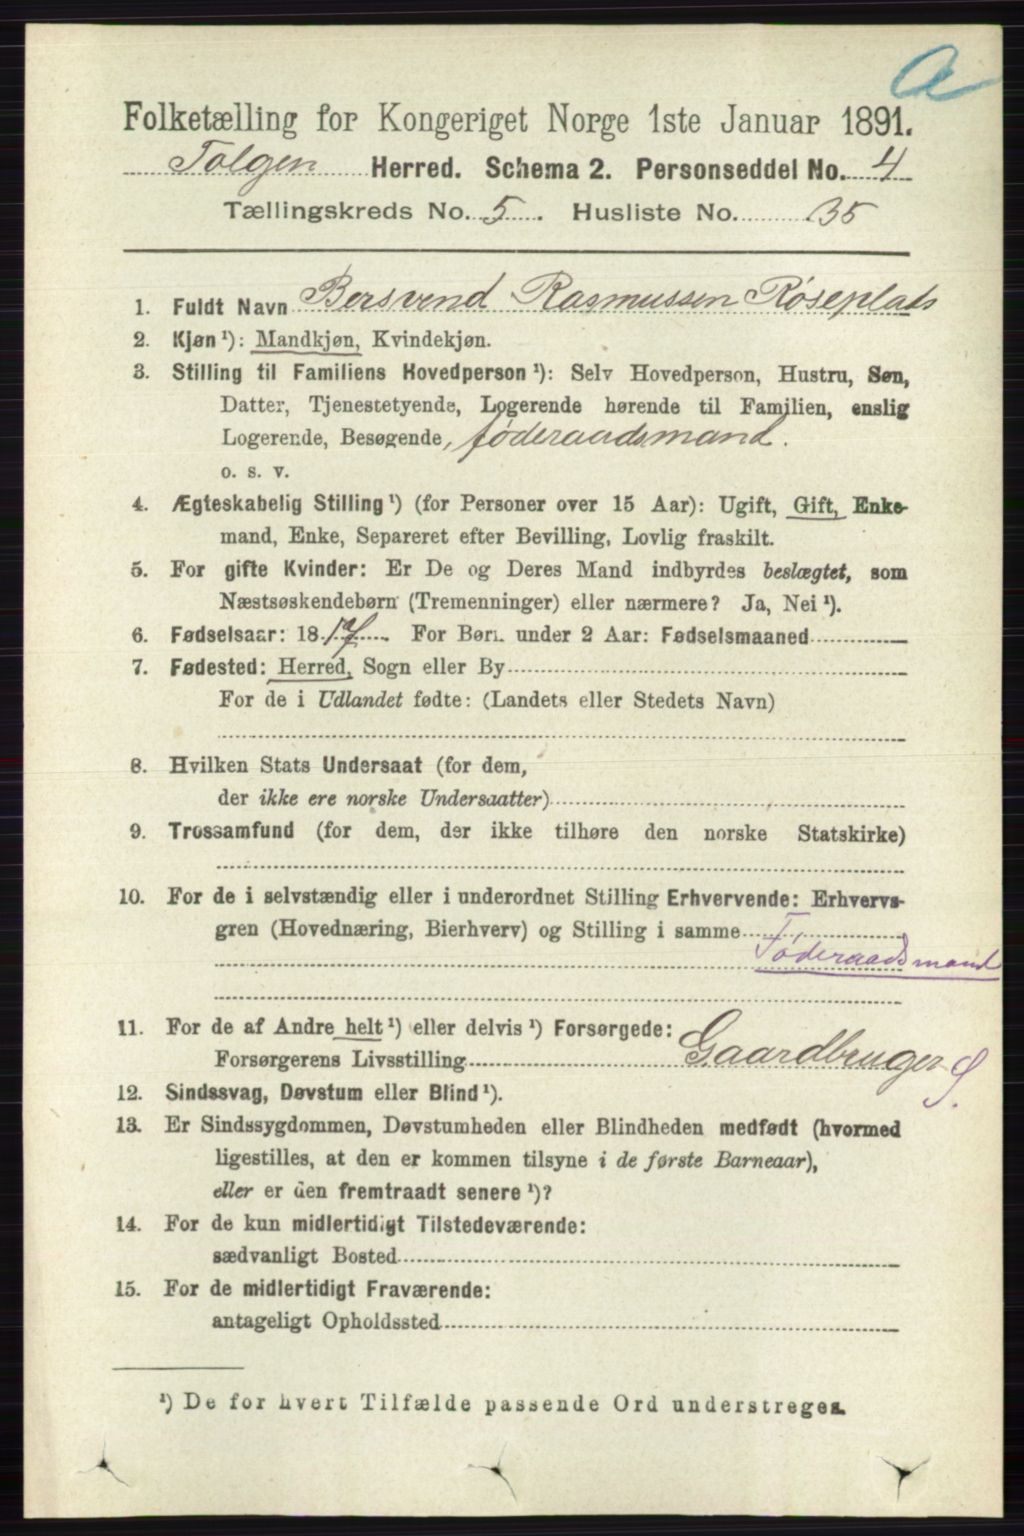 a
Folketælling for Kongeriget Norge 1ste Januar 1891.
Tolgen Herred. Schema 2. Personseddel No. 4
Tællingskreds No. 5. Husliste No. 35
1. Fuldt Navn Bersvend Rasmussen Røseplads
2. Kjøn ¹): Mandkjøn, Kvindekjøn.
3. Stilling til Familiens Hovedperson ¹): Selv Hovedperson, Hustru, Søn,
Datter, Tjenestetyende, Logerende hørende til Familien, enslig
Logerende, Besøgende, føderaadsmand.
o. s. v.
4. Ægteskabelig Stilling ¹) (for Personer over 15 Aar): Ugift, Gift, Enke-
mand, Enke, Separeret efter Bevilling, Lovlig fraskilt.
5. For gifte Kvinder: Er De og Deres Mand indbyrdes beslægtet, som
Næstsøskendebørn (Tremenninger) eller nærmere? Ja, Nei ¹).
6. Fødselsaar: 1817 For Børn under 2 Aar: Fødselsmaaned
7. Fødested: Herred, Sogn eller By
For de i Udlandet fødte: (Landets eller Stedets Navn)
8. Hvilken Stats Undersaat (for dem,
der ikke ere norske Undersaatter)
9. Trossamfund (for dem, der ikke tilhøre den norske Statskirke)
10. For de i selvstændig eller i underordnet Stilling Erhvervende: Erhvervs-
gren (Hovednæring, Bierhverv) og Stilling i samme
Føderaadsmand
11. For de af Andre helt ¹) eller delvis ¹) Forsørgede:
Forsørgerens Livsstilling Gaardbruger S.
12. Sindssvag, Døvstum eller Blind ¹).
13. Er Sindssygdommen, Døvstumheden eller Blindheden medfødt (hvormed
ligestilles, at den er kommen tilsyne i de første Barneaar),
eller er den fremtraadt senere ¹)?
14. For de kun midlertidigt Tilstedeværende:
sædvanligt Bosted
15. For de midlertidigt Fraværende:
antageligt Opholdssted
¹) De for hvert Tilfælde passende Ord understreges.